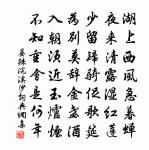 湖上西風急暮蟬
夜來清露濕紅蓮
少留歸騎促歌筵
為別莫辭金盞酒
入朝須近玉爐煙
不知重會是何年
晏殊浣溪沙詞